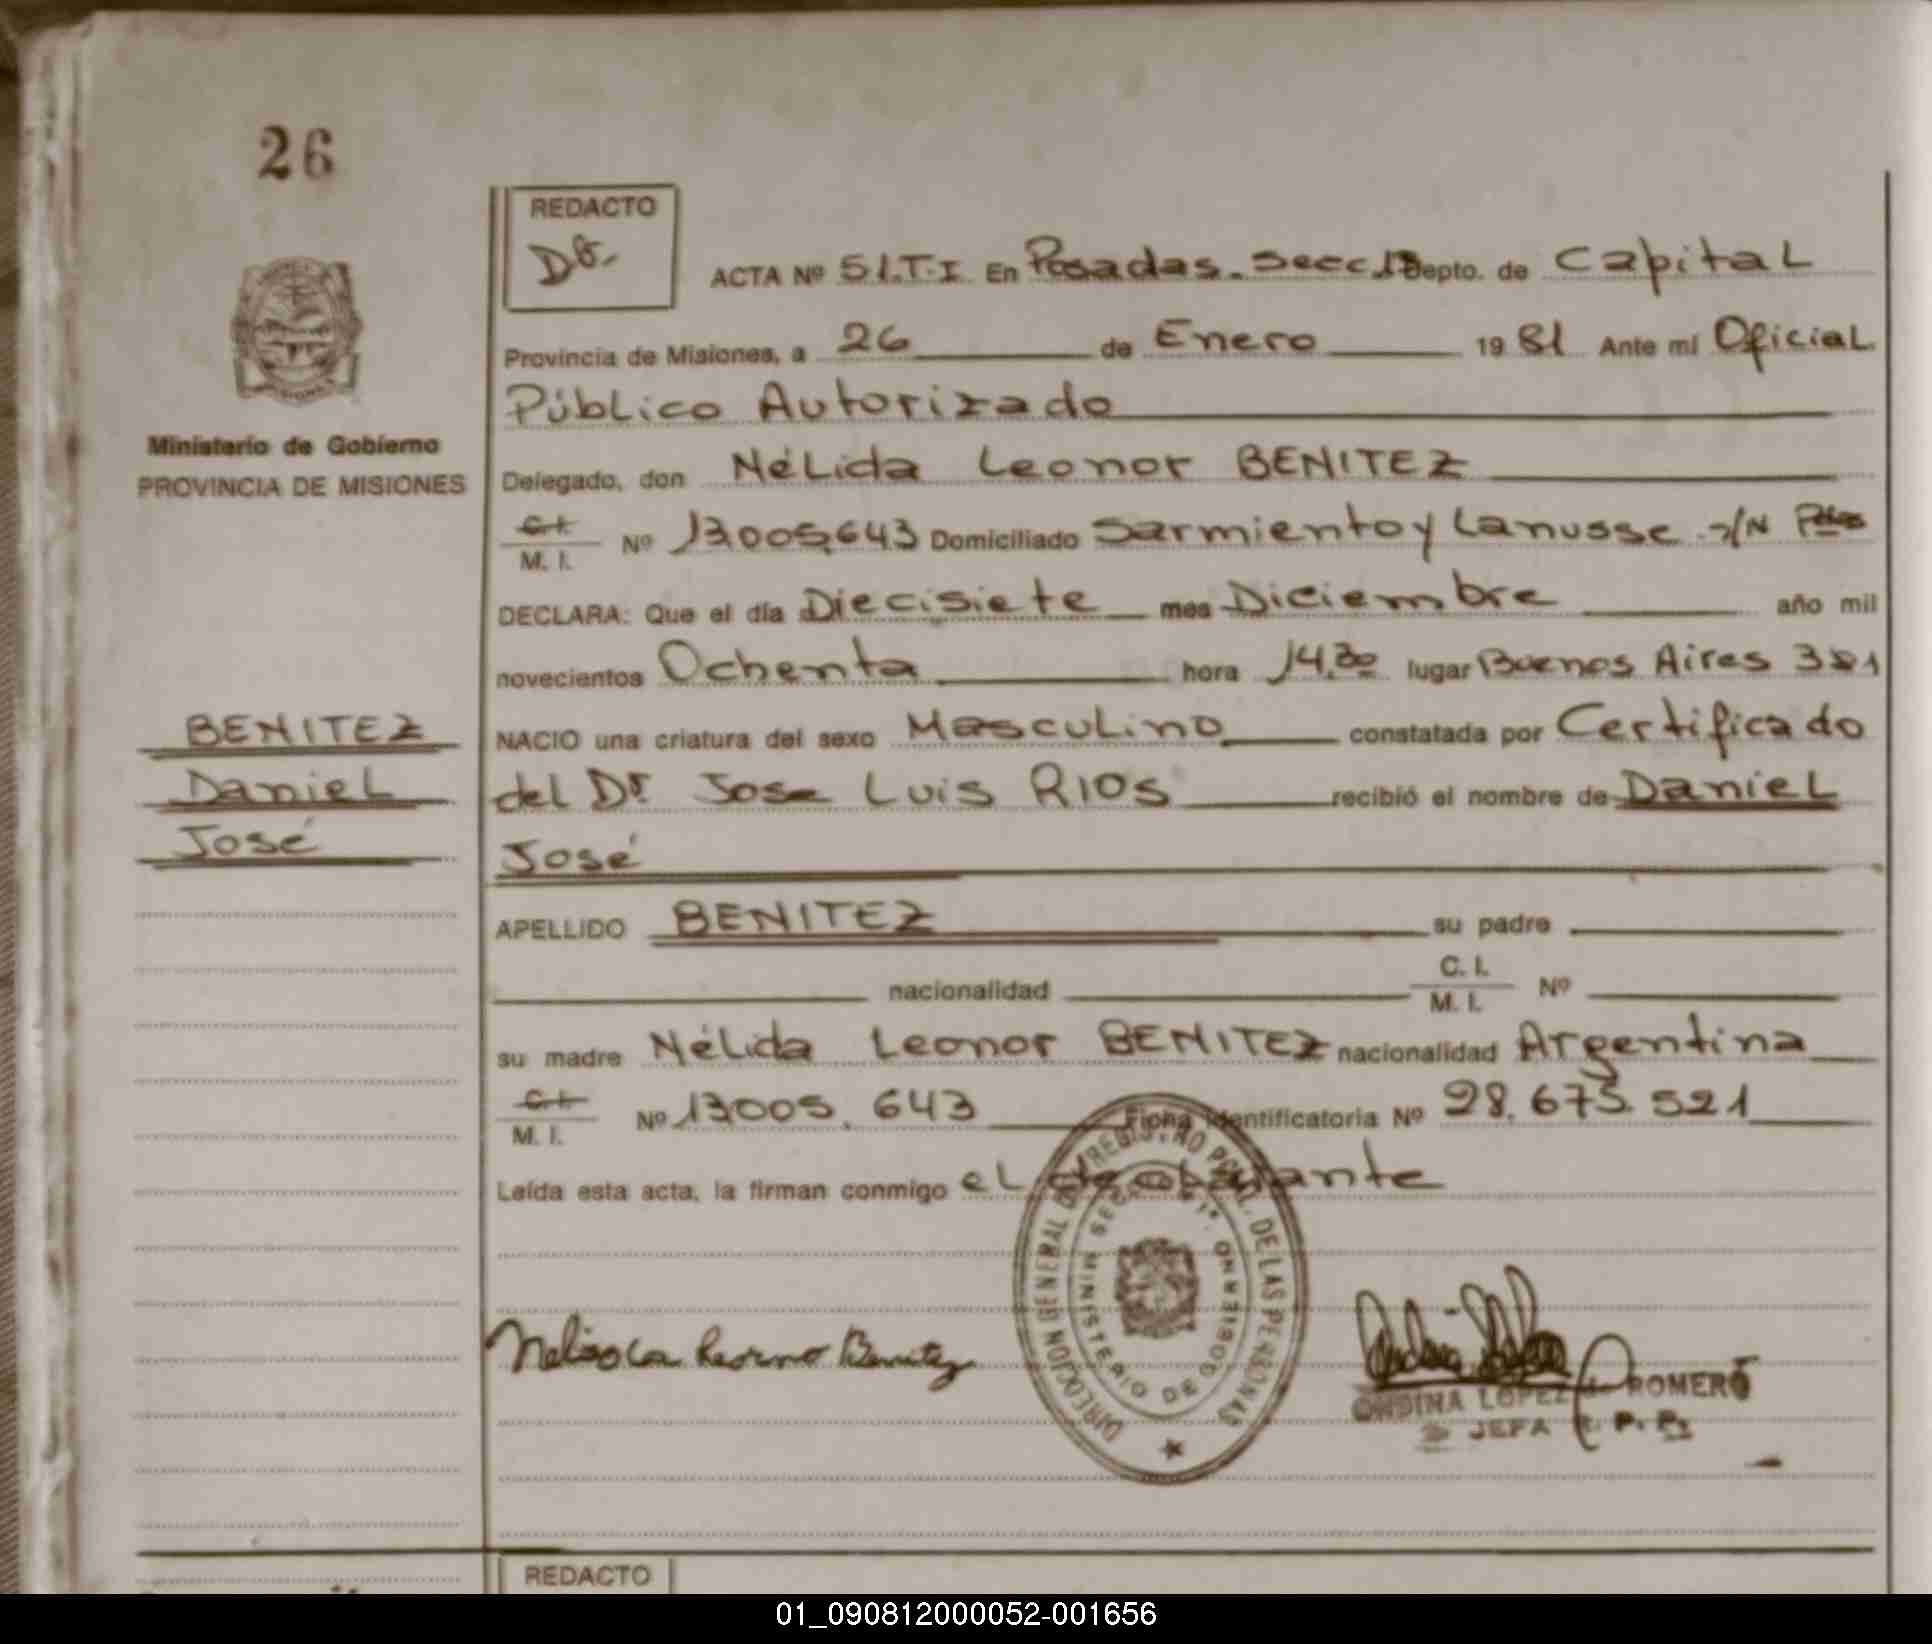 26
REDACTO
Do.
ACTA Nº 51.T.I En Posadas. Secc 1ª Depto. de Capital
Provincia de Misiones, a 26 de Enero 1981 Ante mí Oficial
Público Autorizado
Ministerio de Gobierno
PROVINCIA DE MISIONES
Delegado, don Nélida Leonor BENITEZ
C.I.
M. I. Nº 13.005.643 Domiciliado Sarmiento y Lanusse s/N Pdas
DECLARA: Que el día Diecisiete mes Diciembre año mil
novecientos Ochenta hora 14.30 lugar Buenos Aires 381
NACIO una criatura del sexo Masculino constatada por Certificado
del Dr. Jose Luis RIOS recibió el nombre de Daniel
José
BENITEZ
Daniel
José
APELLIDO BENITEZ su padre
nacionalidad C. I.
M. I. Nº
su madre Nélida Leonor BENITEZ nacionalidad Argentina
C.I.
M. I. Nº 13005.643 Ficha Identificatoria Nº 28.675.521
Leída esta acta, la firman conmigo el declarante
DIRECCION GENERAL DEL REGISTRO PCIAL. DE LAS PERSONAS
MINISTERIO DE GOBIERNO
Nelida Leonor Benitez
ONDINA LOPEZ de ROMERO
JEFA R. P. P.
REDACTO
01_090812000052-001656